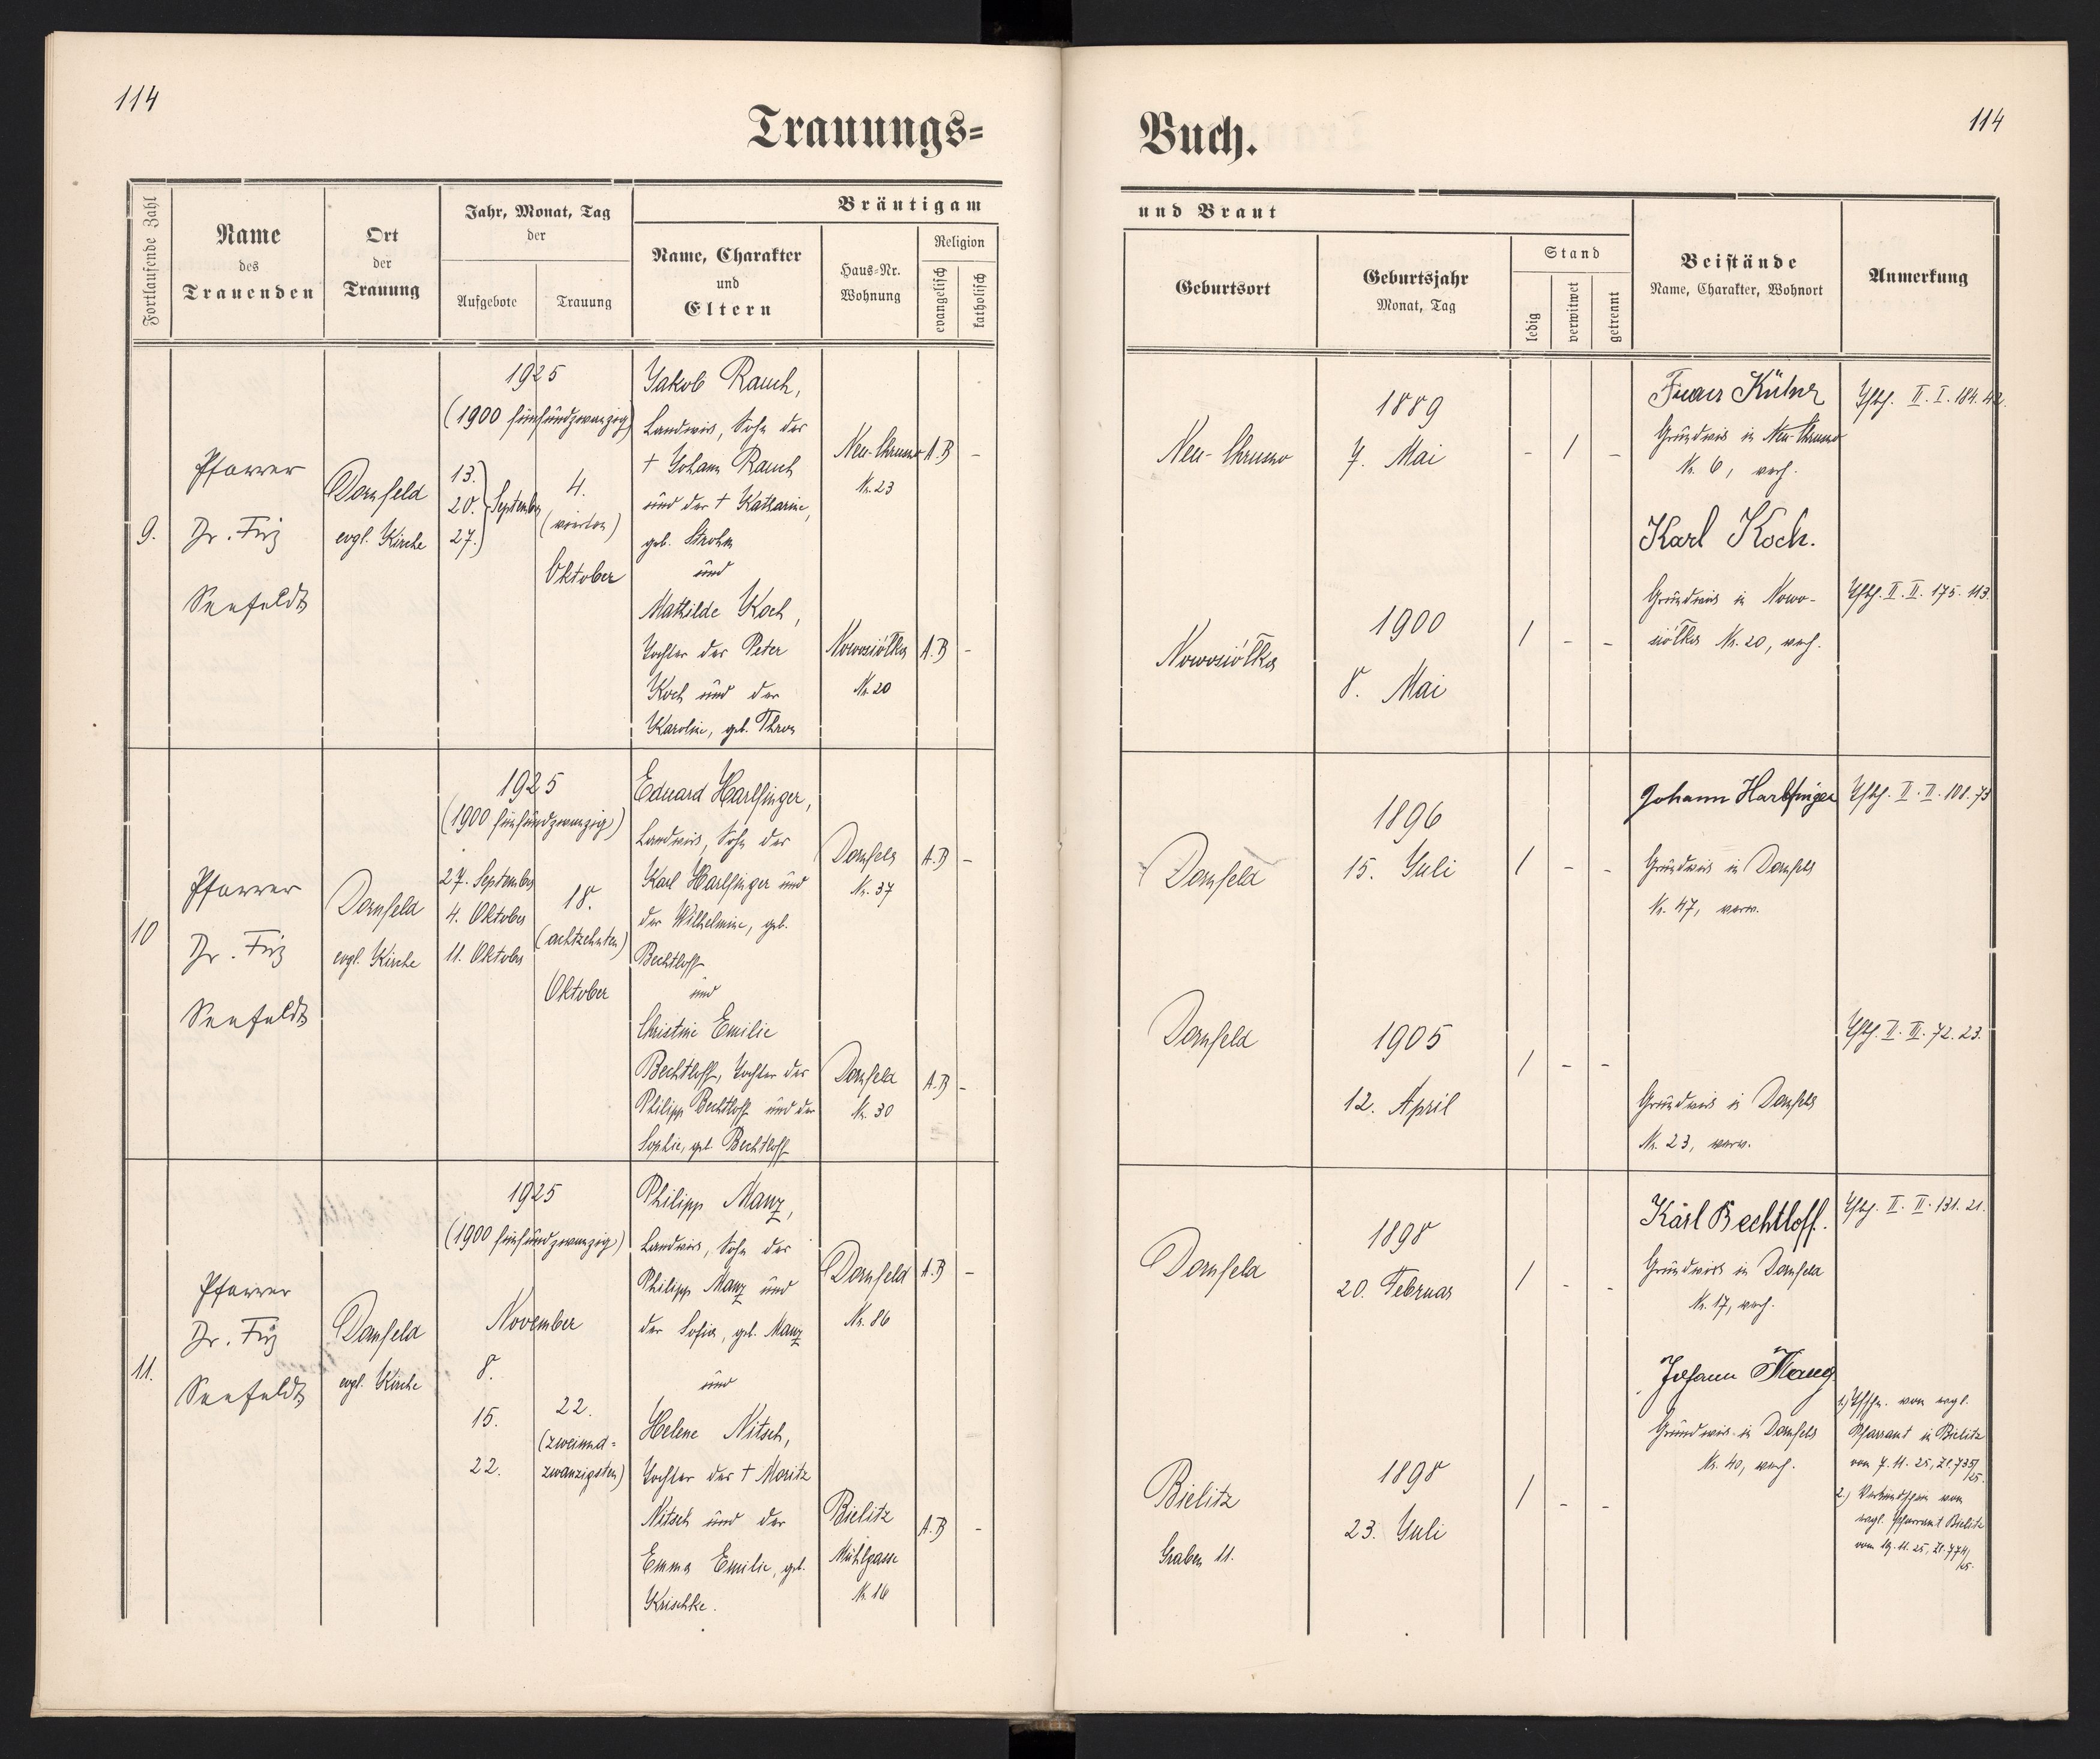 114
114
Trauungs=
Buch.
Fortlaufende Zahl
Name
des
Trauenden
Ort
der
Trauung
Jahr, Monat, Tag
der
Aufgebote
Trauung
Bräutigam
Name, Charakter
und
Eltern
Haus=Nr.
Wohnung
Religion
evangelisch
katholisch
und Braut
Geburtsort
Geburtsjahr
Monat, Tag
Stand
ledig
verwitwet
getrennt
Beistände
Name, Charakter, Wohnort
Anmerkung
9.
Pfarrer
Dr. Friz
Seefeldt
Dornfeld
evgl. Kirche
1925
(1900 fünfundzwanzig)
13.
20. September
27.
4.
(vierten)
Oktober
Jakob Rauch,
Landwirt, Sohn des
† Johann Rauch
und der † Katharine,
geb. Strohm
und
Mathilde Koch,
Tochter des Peter
Koch und der
Karoline, geb. Thron
Neu-Chrusno
Nr. 23
A.B -
Nowosiółka
Nr. 20
A.B -
Neu-Chrusno
1889
7. Mai
- 1 -
Nowosiółka
1900
8. Mai
1 - -
Grundwirt in Neu-Chrusno
Nr. 6, verh.
Karl Koch.
Grundwirt in Nowo-
siółka Nr. 20, verh.
II. I. 184. 42.
II. II. 175. 113.
10
Pfarrer
Dr. Friz
Seefeldt
Dornfeld
evgl. Kirche
1925
(1900 fünfundzwanzig)
27. September
4. Oktober
11. Oktober
18.
(achtzehnten)
Oktober
Eduard Harlfinger,
Landwirt, Sohn des
Karl Harlfinger und
der Wilhelmine, geb.
Bechtloff
und
Christine Emilie
Bechtloff, Tochter des
Philipp Bechtloff und der
Sophie, geb. Bechtloff
Dornfeld
Nr. 37
A.B -
Dornfeld
Nr. 30
A.B -
Dornfeld
1896
15. Juli
1 - -
Dornfeld
1905
12. April
1 - -
Johann Harlfinger
Grundwirt in Dornfeld
Nr. 47, verw.
Grundwirt in Dornfeld
Nr. 23, verw.
II. II. 101. 73
II. III. 72. 23.
11.
Pfarrer
Dr. Friz
Seefeldt
Dornfeld
evgl. Kirche
1925
(1900 fünfundzwanzig)
November
8.
15.
22.
22.
(zweiund-
zwanzigsten)
Philipp Manz,
Landwirt, Sohn des
Philipp Manz und
der Sofia, geb. Manz
und
Helene Nitsch,
Tochter des † Moritz
Nitsch und der
Emma Emilie, geb.
Krischke.
Dornfeld
Nr. 86
A.B -
Bielitz
Mühlgasse
Nr. 16
A.B -
Dornfeld
1898
20. Februar
1 - -
Bielitz
Graben 11.
1898
23. Juli
1 - -
Karl Bechtloff.
Grundwirt in Dornfeld
Nr. 17, verh.
Johann Manz
Grundwirt in Dornfeld
Nr. 40, verh.
II. II. 131. 21.
1.) vom evgl.
Pfarramt in Bielitz
vom 7. 11. 25, Zl. 735/25.
2.) Verkündschein vom
evgl. Pfarramt Bielitz